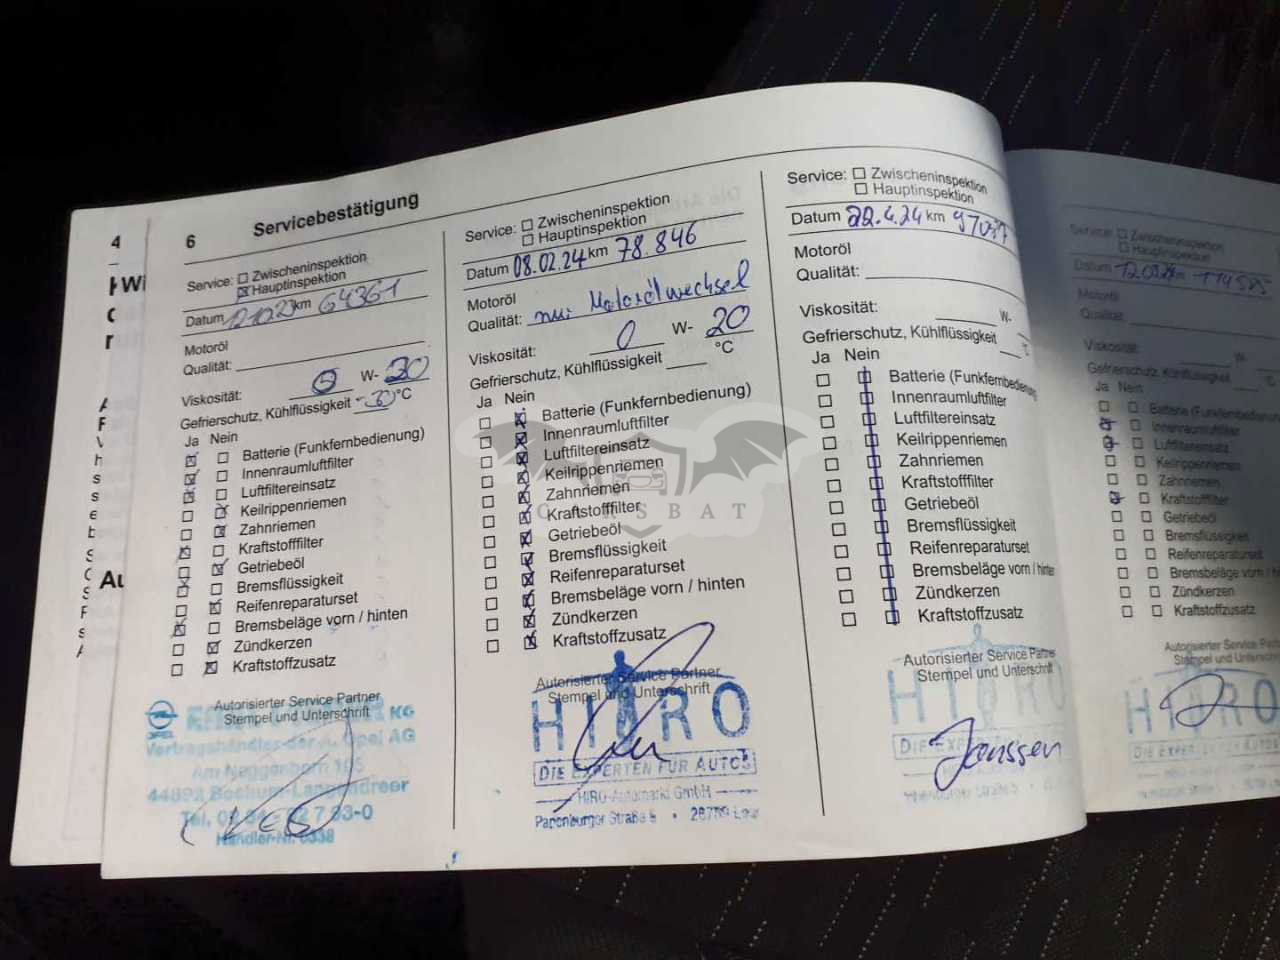 4
Wi
Au
6 Servicebestätigung
Service: Zwischeninspektion
Hauptinspektion
Datum km 64361
Motoröl
Qualität:
Viskosität: 0 W- 20
Gefrierschutz, Kühlflüssigkeit -30 °C
Ja Nein
Batterie (Funkfernbedienung)
Innenraumluftfilter
Luftfiltereinsatz
Keilrippenriemen
Zahnriemen
Kraftstofffilter
Getriebeöl
Bremsflüssigkeit
Reifenreparaturset
Bremsbeläge vorn / hinten
Zündkerzen
Kraftstoffzusatz
Autorisierter Service Partner
Stempel und Unterschrift
KG
Vertragshändler der A. Opel AG
44892 Bochum-Langendreer
Service: Zwischeninspektion
Hauptinspektion
Datum 08.02.24 km 78.846
Motoröl
Qualität: nur Motorölwechsel
Viskosität: 0 W- 20
Gefrierschutz, Kühlflüssigkeit °C
Ja Nein
Batterie (Funkfernbedienung)
Innenraumluftfilter
Luftfiltereinsatz
Keilrippenriemen
Zahnriemen
Kraftstofffilter
Getriebeöl
Bremsflüssigkeit
Reifenreparaturset
Bremsbeläge vorn / hinten
Zündkerzen
Kraftstoffzusatz
Autorisierter Service Partner
Stempel und Unterschrift
HIRO
DIE EXPERTEN FÜR AUTOS
HIRO-Automarkt GmbH
Papenburger Straße
Service: Zwischeninspektion
Hauptinspektion
Datum 22.4.24 km 97037
Motoröl
Qualität:
Viskosität: W-
Gefrierschutz, Kühlflüssigkeit °C
Ja Nein
Batterie (Funkfernbedienung
Innenraumluftfilter
Luftfiltereinsatz
Keilrippenriemen
Zahnriemen
Kraftstofffilter
Getriebeöl
Bremsflüssigkeit
Reifenreparaturset
Bremsbeläge vorn / hinten
Zündkerzen
Kraftstoffzusatz
Autorisierter Service Partner
Stempel und Unterschrift
HIRO
Janssen
Service: Zwischeninspektion
Hauptinspektion
Datum km
Motoröl
Qualität:
Viskosität: W-
Gefrierschutz, Kühlflüssigkeit
Ja Nein
Batterie (Funkfernbedienung)
Innenraumluftfilter
Luftfiltereinsatz
Keilrippenriemen
Zahnriemen
Kraftstofffilter
Getriebeöl
Bremsflüssigkeit
Reifenreparaturset
Bremsbeläge vorn / hinten
Zündkerzen
Kraftstoffzusatz
Autorisierter Service Partner
Stempel und Unterschrift
HIRO